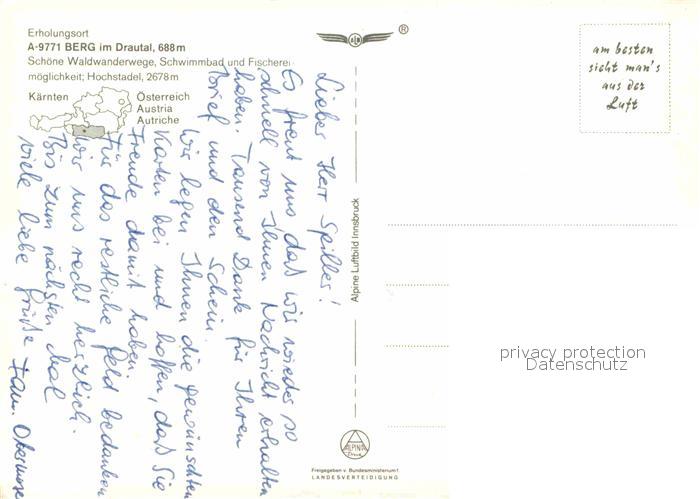 Erholungsort
A-9771 BERG im Drautal, 688 m
Schöne Waldwanderwege, Schwimmbad und Fischerei-
möglichkeit; Hochstadel, 2678 m
Kärnten
Österreich
Austria
Autriche
®
am besten
sieht man's
aus der
Luft
Lieber Herr Spilles!
Es freut uns daß wir wieder so
schnell von Ihnen Nachricht erhalten
haben. Tausend Dank für Ihren
Brief und den Schein.
Wir legen Ihnen die gewünschten
Karten bei und hoffen, daß Sie
Freude damit haben.
Für das restliche Geld bedanken
wir uns recht herzlich.
Bis zum nächsten Mal
viele liebe Grüße Fam.
Alpine Luftbild Innsbruck
privacy protection
Datenschutz
ALPINA
Druck
Freigegeben v. Bundesministerium f.
LANDESVERTEIDIGUNG